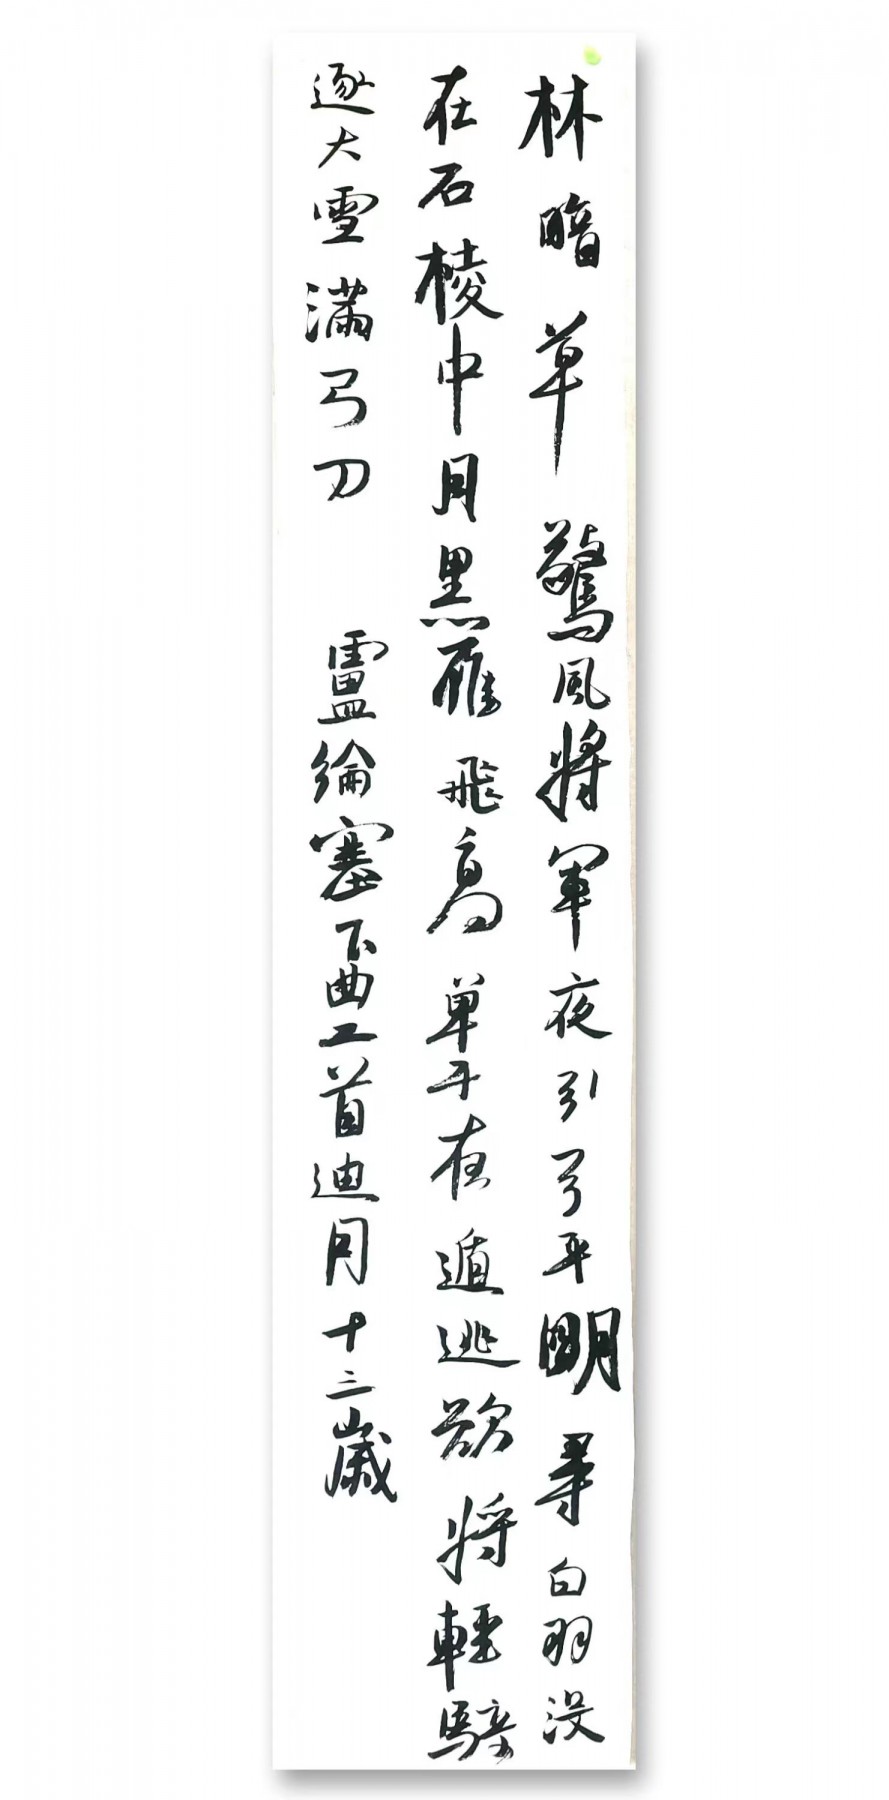 林暗草驚風將軍夜引弓平明尋白羽没
在石棱中月黑雁飛高單于在遁逃欲將輕騎
逐大雪滿弓刀 盧綸塞下曲二首迪月十三歲